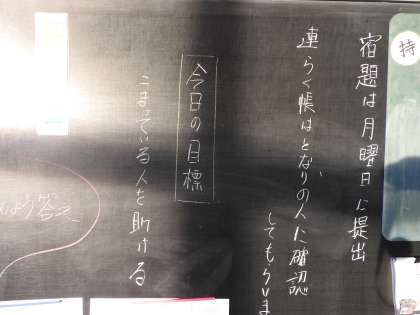 持
宿題は月曜日に提出
連らく帳はとなりの人に確認
してもらいま
今日の目標
こまっている人を助ける